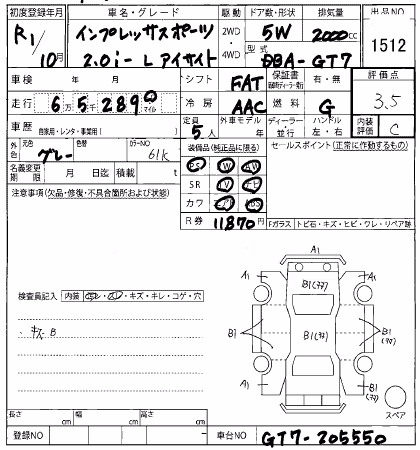 初度登録年月 車名・グレード 駆動 ドア数・形状 排気量 出品NO
R1 10月 インプレッサスポーツ 2WD 4WD 5W 2000cc 1512
2.0i-L アイサイト 型式 DBA-GT7
車検 年 月 シフト FAT 保証書 有・無 評価点
走行 6万5千289 km マイル 冷房 AAC 燃料 G 3.5
車歴 自家用・レンタ・事業用( ) 定員 5人 外車モデル 年 ディーラー 並行 ハンドル 左・右 内装評価 C
外色 元色 グレー 色替 カラーNO 61K 装備品(純正品に限る) セールスポイント(正常に作動するもの)
名義変更期限 月 日迄 積載 t PS PW AW
注意事項(欠品・修復・不具合箇所および状態) SR TV ナビ
カワ エアB ABS
R券 11,870円 Fガラス トビ石・キズ・ヒビ・ワレ・リペア跡
A1
A1 B1(アタ) A1
検査員記入 内装 ヨゴレ・スレ・キズ・キレ・コゲ・穴
・キズ B
B1 B1(アタ) B1
A1 B1(アタ) B1(アタ)
A1 スペア
長さ cm 幅 cm 高さ cm
登録NO 車台NO GT7-205550